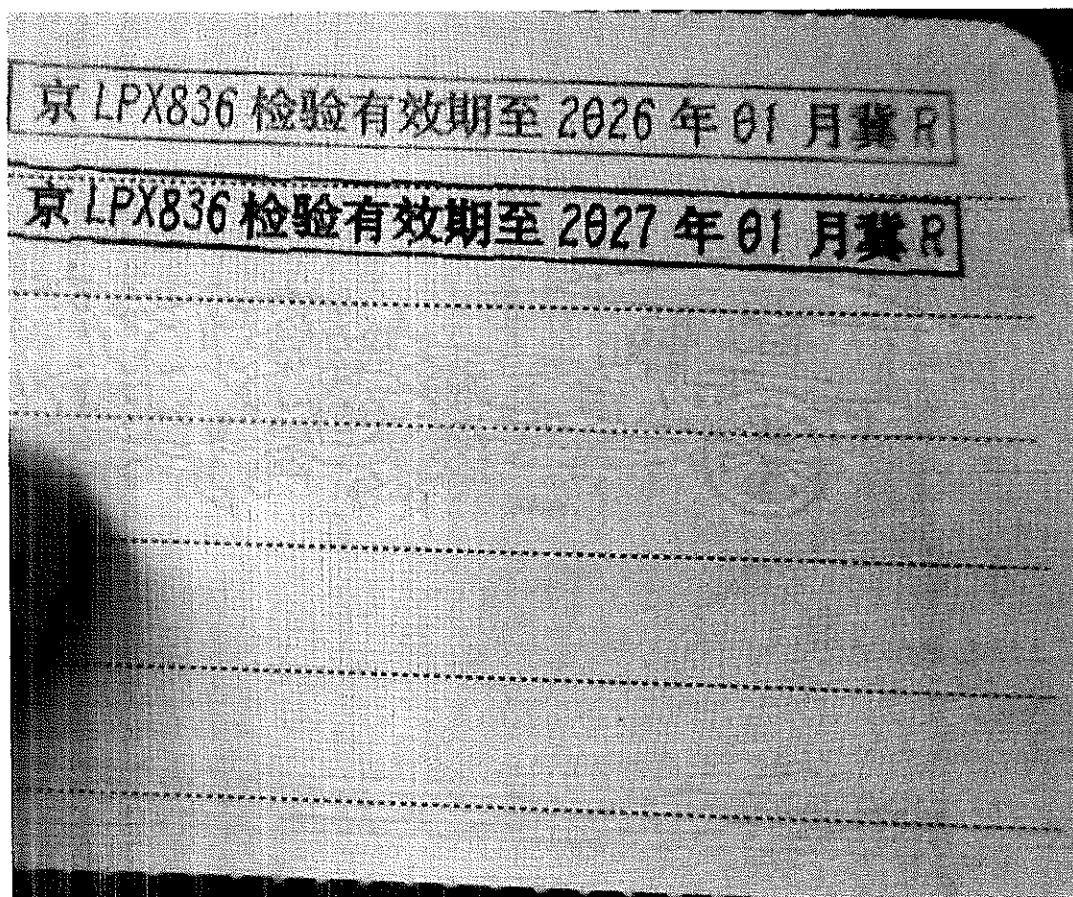 京 LPX836 检验有效期至 2026 年 01 月冀 R
京 LPX836 检验有效期至 2027 年 01 月冀 R